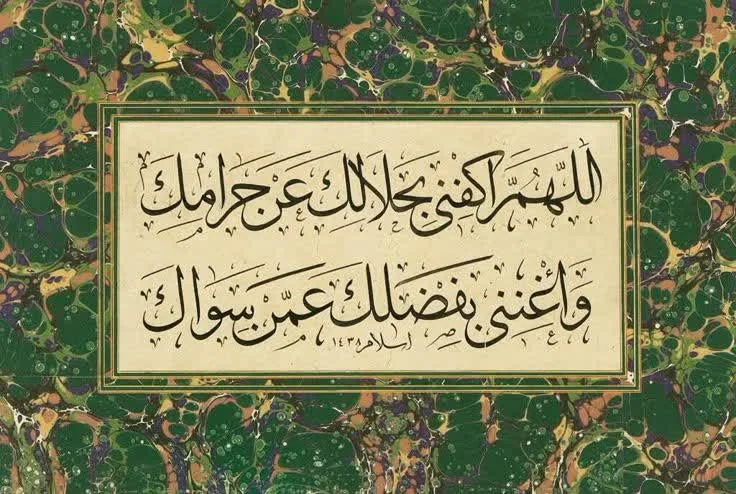 اَللّٰهُمَّ اكْفِنِي بِحَلَالِكَ عَنْ حَرَامِكَ
وَأَغْنِنِي بِفَضْلِكَ عَمَّنْ سِوَاكَ
اسلام ١٤٣٨